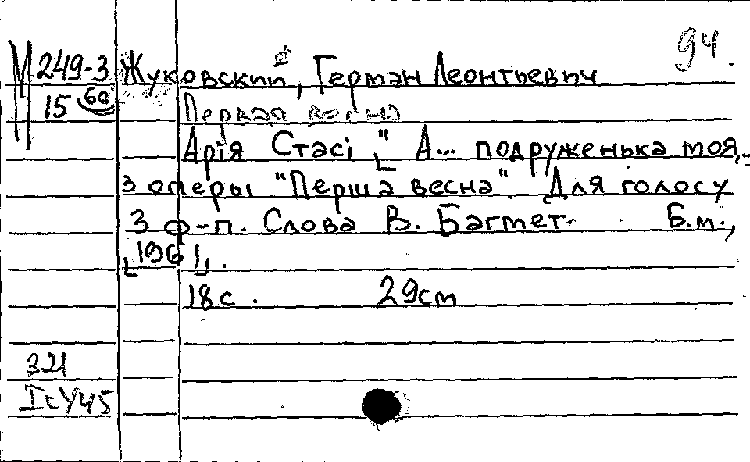 94.
М 249-3 Жуковский, Герман Леонтьевич
15 60 Первая весна
Арія Стасі „А... подруженька моя„
з оперы "Перша весна". Для голосу
З ф-п. Слова В. Багмет. Б.м.,
[196 ].
18с. 29см
321
ІсУ45